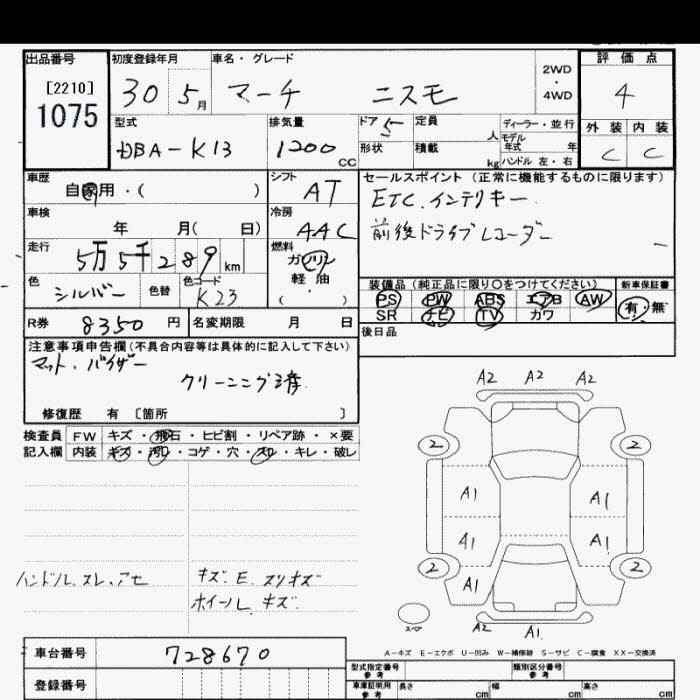 出品番号 初度登録年月 車名・グレード 評価点
[2210]
1075
30 5月 マーチ ニスモ
2WD
・
4WD
4
外装 内装
C C
型式 排気量 ドア 5 定員 人 ディーラー・並行
DBA-K13 1200 CC 形状 積載 kg
モデル年式 年
ハンドル 左・右
車歴 シフト セールスポイント(正常に機能するものに限ります)
自家用・( ) AT ETC.インテリキー
車検 冷房
年 月( 日) AAC 前後ドライブレコーダー
走行 燃料
5万5千289km ガソリン
軽油
・
( )
色 色替 色コード
シルバー K23
装備品(純正品に限り○をつけてください) 新車保証書
PS PW ABS エアB AW 有・無
SR ナビ TV カワ
R券 8350円 名変期限 月 日
後日品
注意事項申告欄(不具合内容等は具体的に記入して下さい)
マット.バイザー
クリーニング済
修復歴 有 [箇所 ]
検査員 FW キズ・飛石・ヒビ割・リペア跡・×要
記入欄 内装 キズ・汚レ・コゲ・穴・スレ・キレ・破レ
A2 A2 A2
2 2
A1 A1
A1 A1
2 2
A1
スペア
A2 A1
ハンドル.スレ.アセ キズ.E.スリキズ
ホイール.キズ
A-キズ E-エクボ U-凹み W-補修跡 S-サビ C-腐食 XX-交換済
車台番号 728670
登録番号
型式指定番号 参考 類別区分番号 参考
車庫証明用 参考 長さ cm 幅 cm 高さ cm